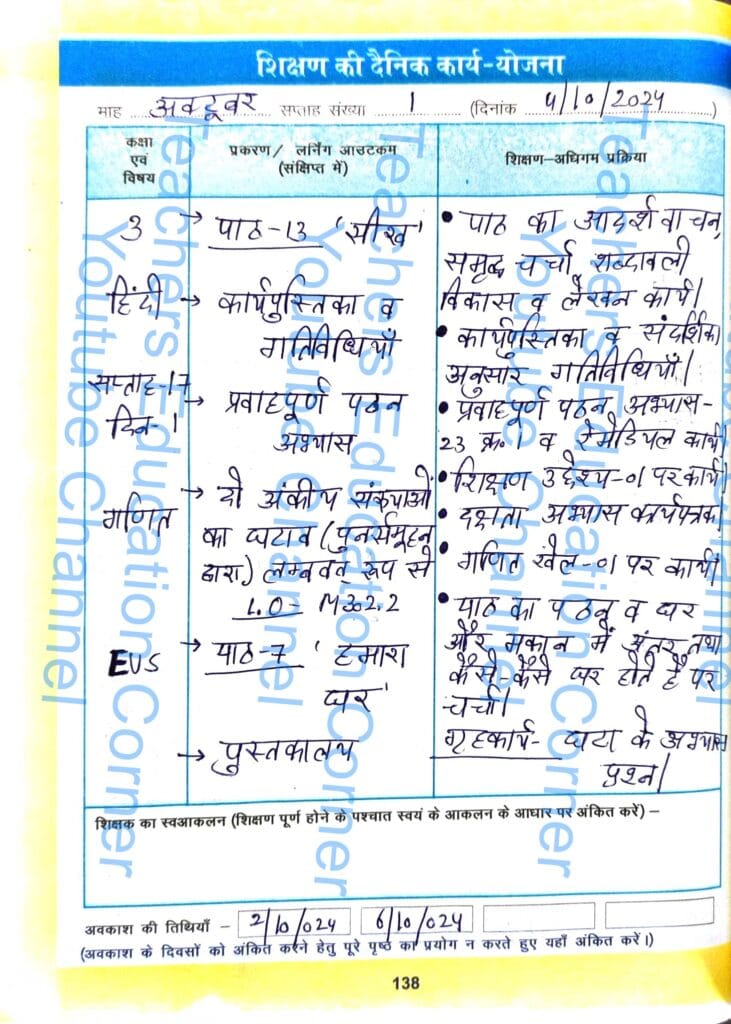 शिक्षण की दैनिक कार्य-योजना
माह अक्टूबर सप्ताह संख्या 1 (दिनांक 4/10/2024)
कक्षा
एवं
विषय
प्रकरण/ लर्निंग आउटकम
(संक्षिप्त में)
शिक्षण-अधिगम प्रक्रिया
3
हिंदी
सप्ताह-17
दिन-1
→ पाठ-13 'सीख'
→ कार्यपुस्तिका व
गतिविधियाँ
→ प्रवाहपूर्ण पठन
अभ्यास
• पाठ का आदर्श वाचन,
समृद्ध चर्चा, शब्दावली
विकास व लेखन कार्य।
• कार्यपुस्तिका व संदर्शिका
अनुसार गतिविधियाँ।
• प्रवाहपूर्ण पठन अभ्यास-
23 क्र. 1 व रेमेडियल कार्य।
गणित
→ दो अंकीय संख्याओं
का घटाव (पुनर्समूहन
द्वारा) लम्बवत् रूप से
L.O- M302.2
• शिक्षण उद्देश्य-01 पर कार्य।
• दक्षता अभ्यास कार्यपत्रक।
• गणित खेल-01 पर कार्य।
EVS
→ पाठ-7 'हमारा
घर'
→ पुस्तकालय
• पाठ का पठन व घर
और मकान में अंतर तथा
कैसे-कैसे घर होते हैं पर
चर्चा।
गृहकार्य- घटा के अभ्यास
प्रश्न।
शिक्षक का स्वआकलन (शिक्षण पूर्ण होने के पश्चात स्वयं के आकलन के आधार पर अंकित करें) –
अवकाश की तिथियाँ - 2/10/024 6/10/024
(अवकाश के दिवसों को अंकित करने हेतु पूरे पृष्ठ का प्रयोग न करते हुए यहाँ अंकित करें।)
138
Teachers Education Corner
Youtube Channel
Teachers Education Corner
Youtube Channel
Teachers Education Corner
Youtube Channel